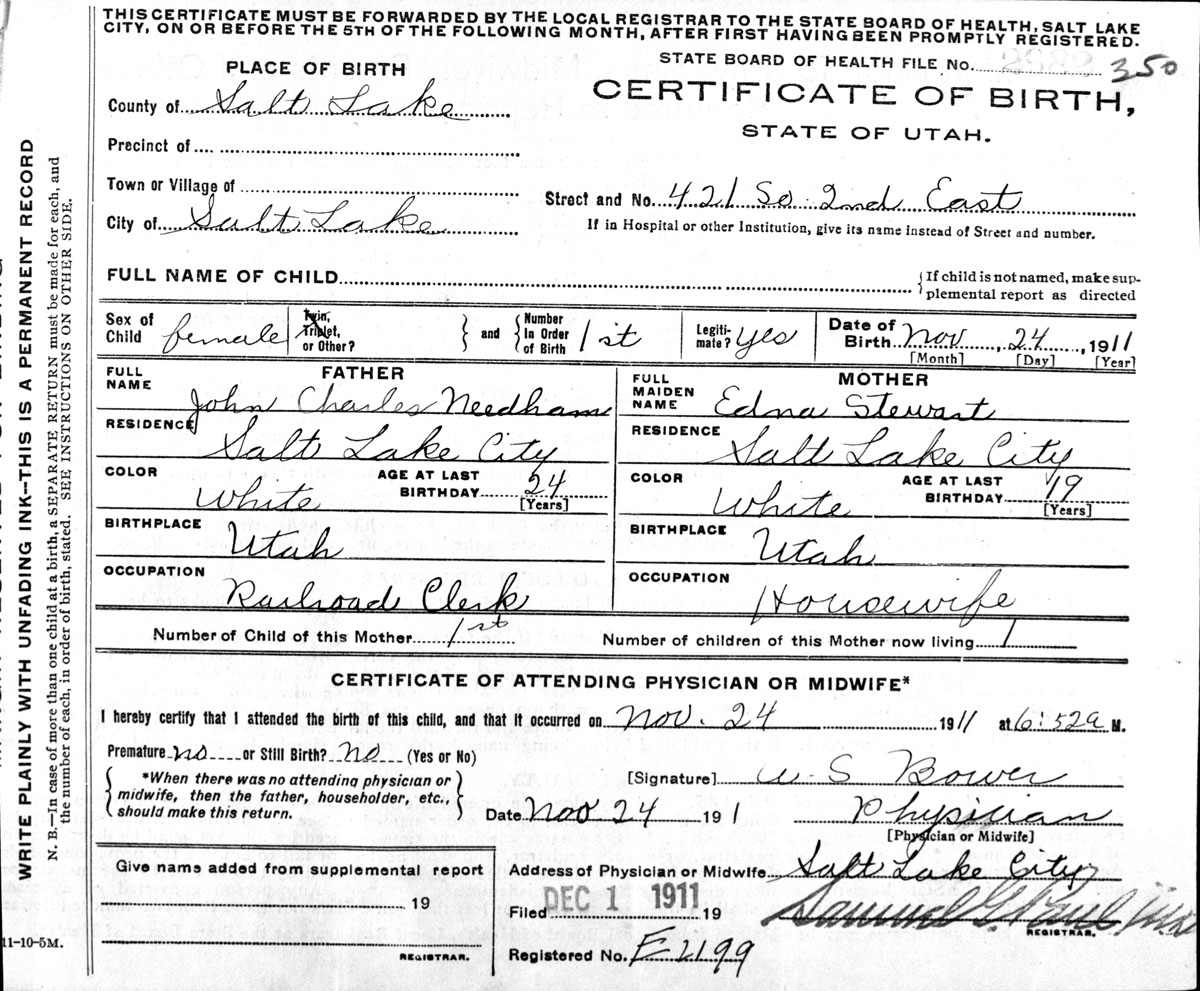 THIS CERTIFICATE MUST BE FORWARDED BY THE LOCAL REGISTRAR TO THE STATE BOARD OF HEALTH, SALT LAKE
CITY, ON OR BEFORE THE 5TH OF THE FOLLOWING MONTH, AFTER FIRST HAVING BEEN PROMPTLY REGISTERED.
STATE BOARD OF HEALTH FILE No. 350
PLACE OF BIRTH
CERTIFICATE OF BIRTH,
STATE OF UTAH.
County of Salt Lake
Precinct of
Town or Village of
Street and No. 421 So 2nd East
City of Salt Lake
If in Hospital or other Institution, give its name instead of Street and number.
FULL NAME OF CHILD
{If child is not named, make sup-
plemental report as directed
Sex of Child female
Twin, Triplet, or Other?
and
Number In Order of Birth 1st
Legiti-mate? yes
Date of Birth Nov 24 1911
[Month] [Day] [Year]
FATHER
FULL NAME John Charles Needham
RESIDENCE Salt Lake City
COLOR White
AGE AT LAST BIRTHDAY 24
[Years]
BIRTHPLACE Utah
OCCUPATION Railroad Clerk
MOTHER
FULL MAIDEN NAME Edna Stewart
RESIDENCE Salt Lake City
COLOR White
AGE AT LAST BIRTHDAY 19
[Years]
BIRTHPLACE Utah
OCCUPATION Housewife
Number of Child of this Mother 1st
Number of children of this Mother now living 1
CERTIFICATE OF ATTENDING PHYSICIAN OR MIDWIFE*
I hereby certify that I attended the birth of this child, and that it occurred on Nov. 24 1911 at 6:52a M.
Premature no or Still Birth? No (Yes or No)
*When there was no attending physician or
midwife, then the father, householder, etc.,
should make this return.
[Signature] W S Bower
Date Nov 24 191
Physician
[Physician or Midwife]
Give name added from supplemental report
19
REGISTRAR.
Address of Physician or Midwife Salt Lake City
Filed DEC 1 1911 19
Samuel G. Paul
REGISTRAR.
Registered No. E2199
11-10-5M.
WRITE PLAINLY WITH UNFADING INK--THIS IS A PERMANENT RECORD
N. B.—In case of more than one child at a birth, a SEPARATE RETURN must be made for each, and
the number of each, in order of birth, stated. SEE INSTRUCTIONS ON OTHER SIDE.